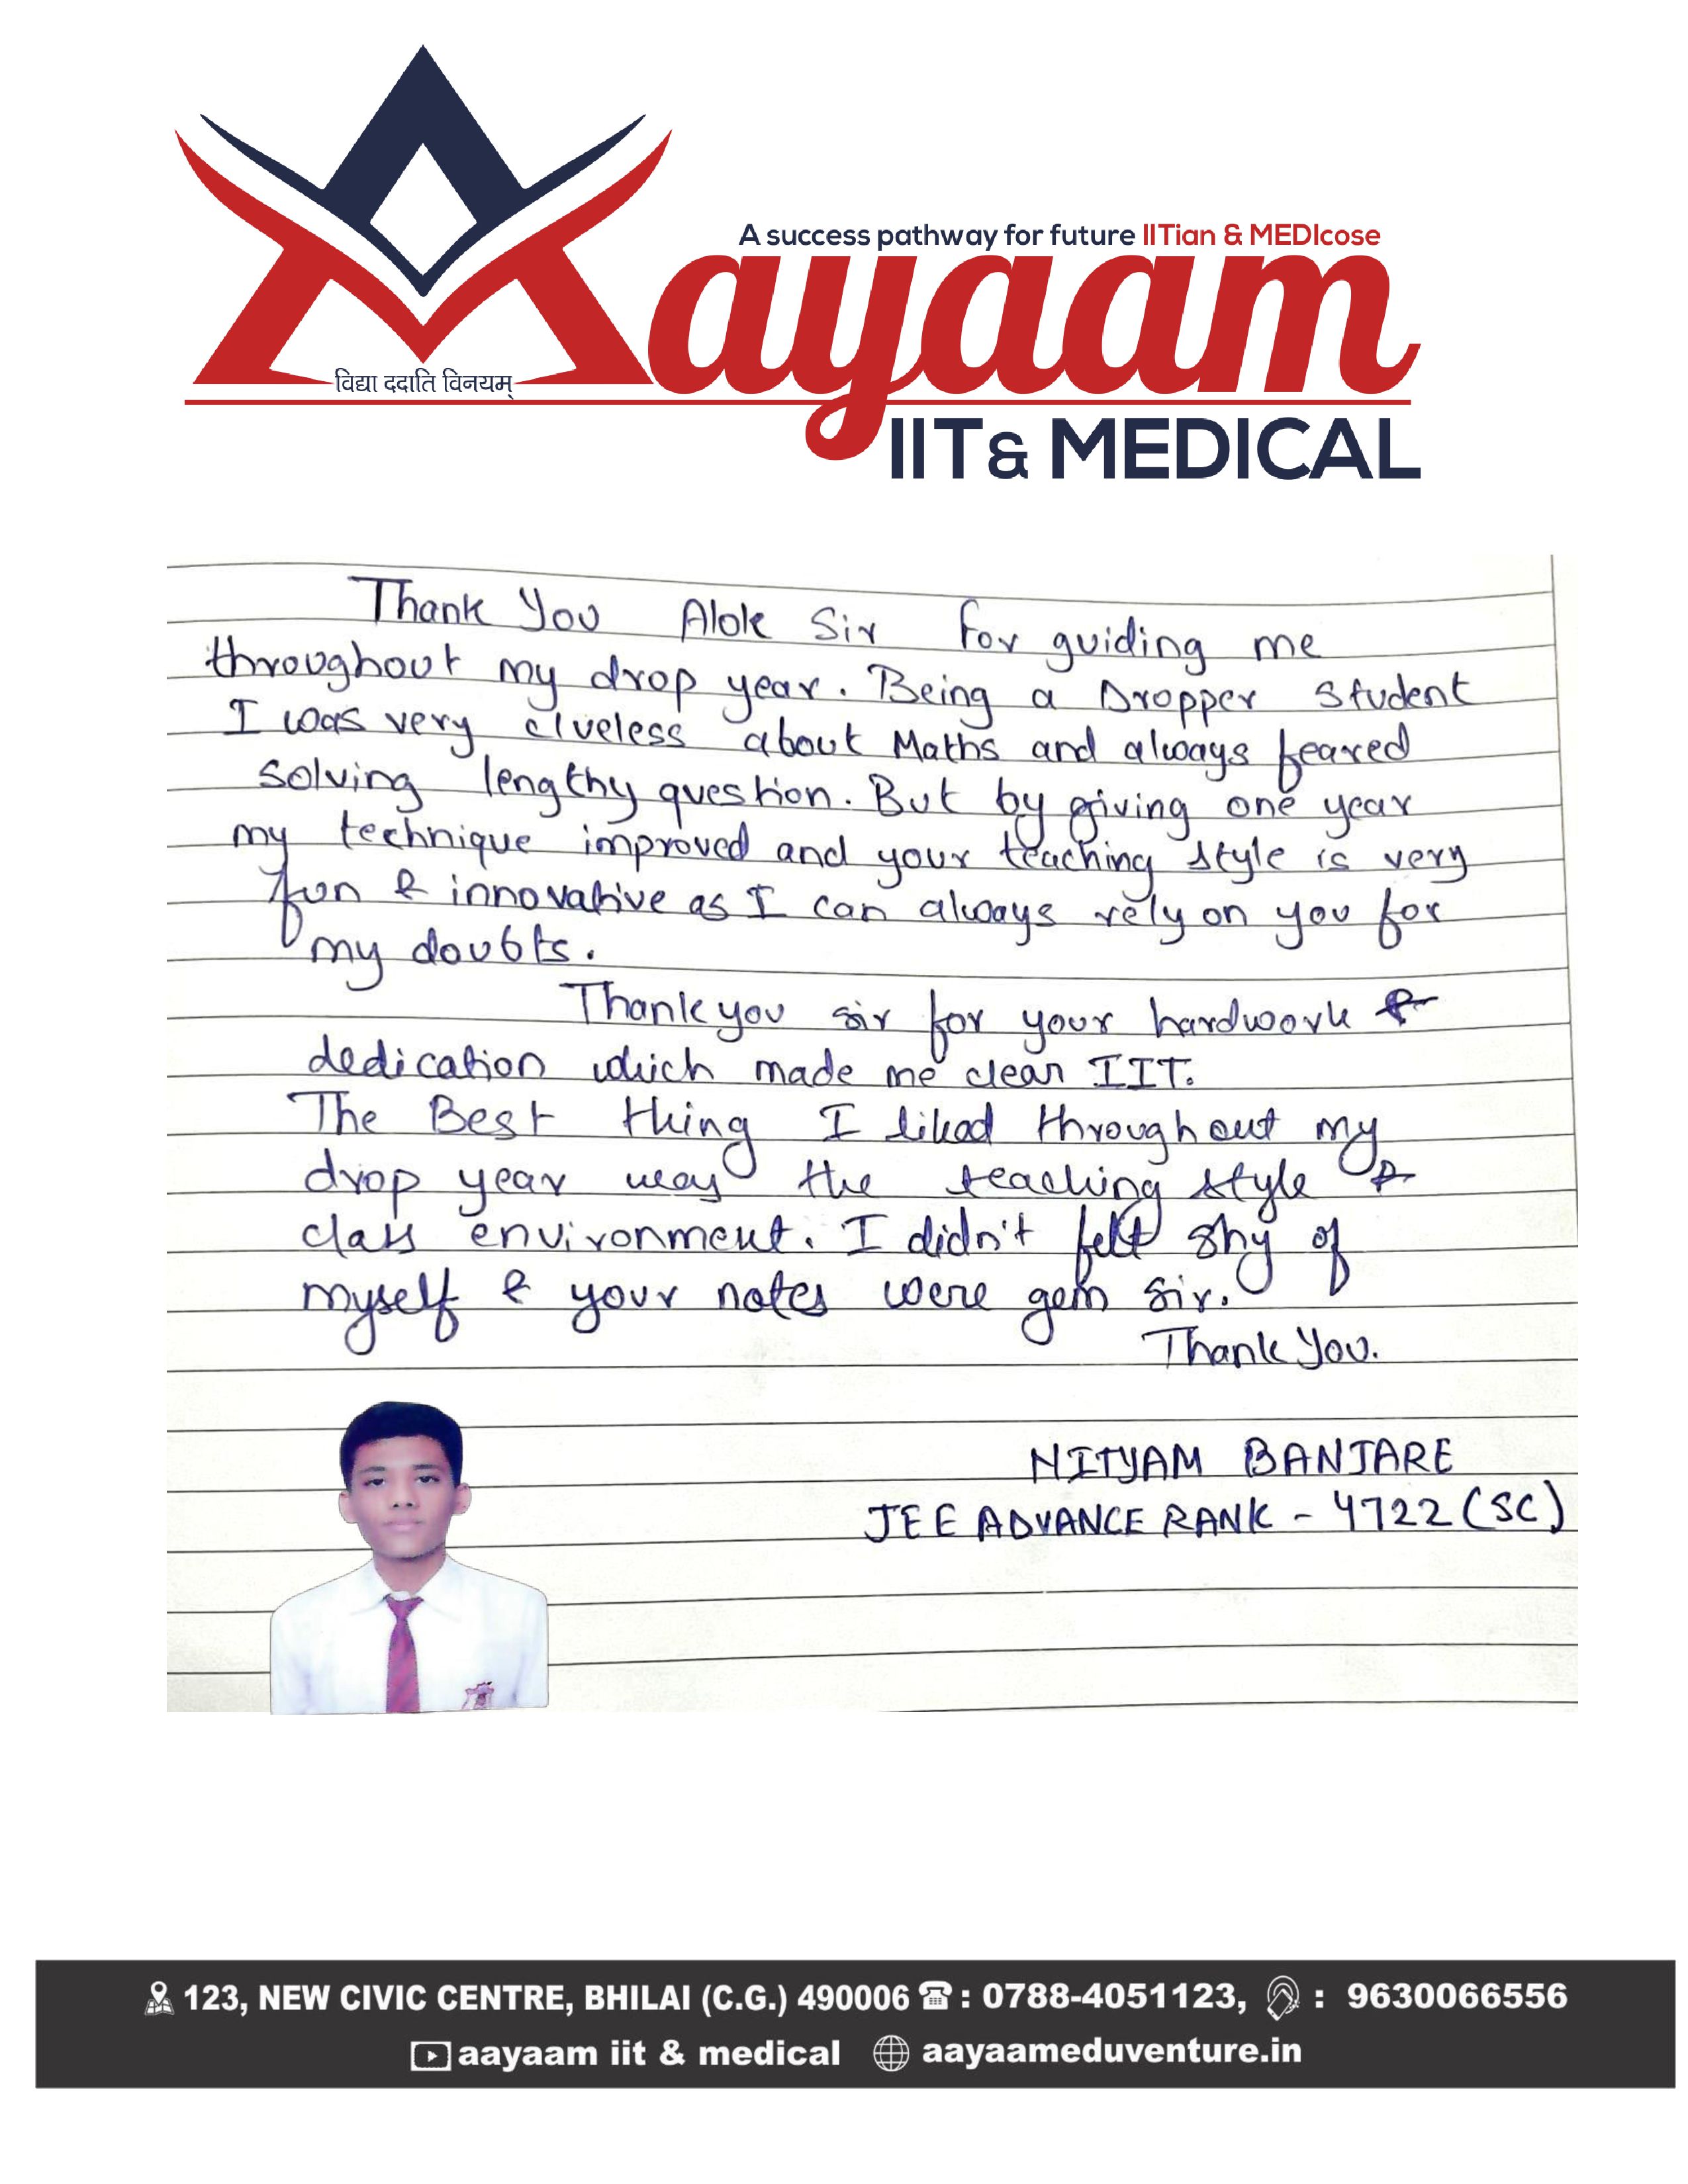 A success pathway for future IITian & MEDIcose
Aayaam
विद्या ददाति विनयम्
IIT & MEDICAL
Thank You Alok Sir For guiding me
throughout my drop year. Being a Dropper Student
I was very clueless about Maths and always feared
solving lengthy question. But by giving one year
my technique improved and your teaching style is very
fun & innovative as I can always rely on you for
my doubts.
Thank you sir for your hardwork &
dedication which made me clear IIT.
The Best thing I liked throughout my
drop year was the teaching style &
class environment. I didn't felt shy of
myself & your notes were gem sir.
Thank You.
NITYAM BANJARE
JEE ADVANCE RANK - 4722 (SC)
123, NEW CIVIC CENTRE, BHILAI (C.G.) 490006 : 0788-4051123, : 9630066556
aayaam iit & medical aayaameduventure.in